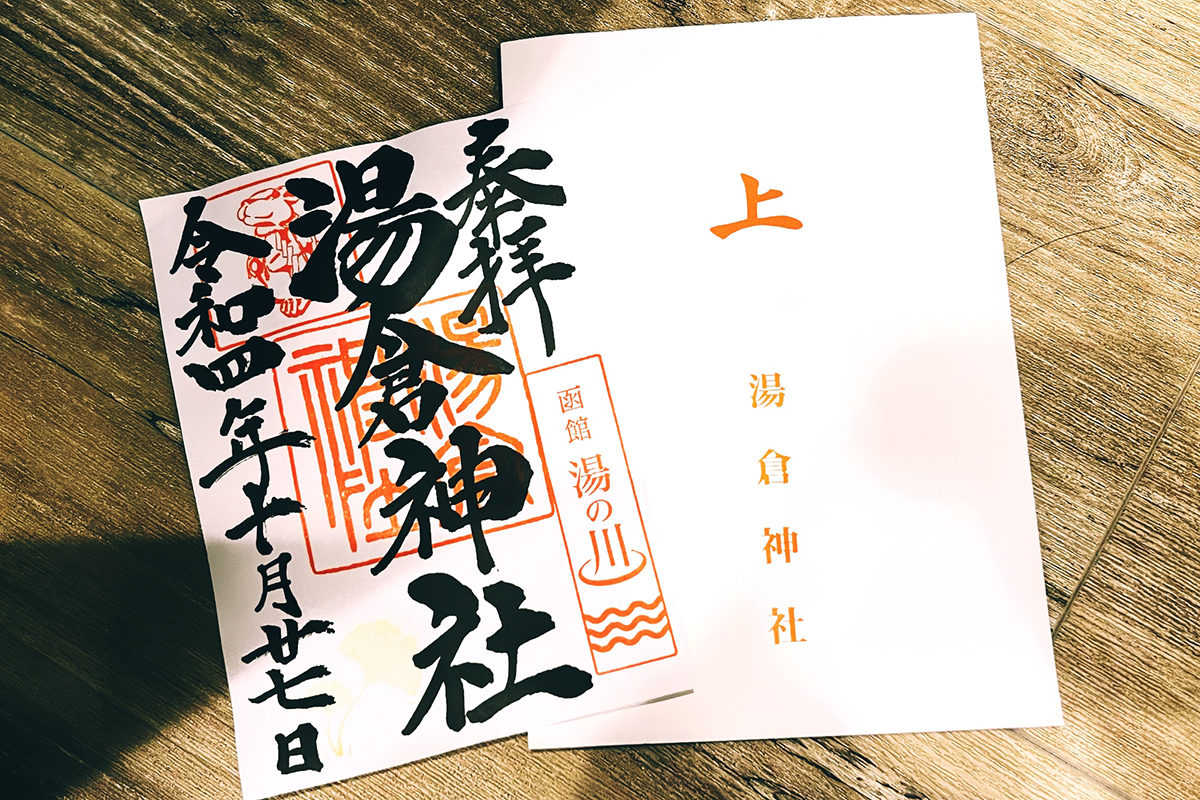 上
湯倉神社
奉拝
函館 湯の川
湯倉神社
湯倉神社
令和四年十月廿七日